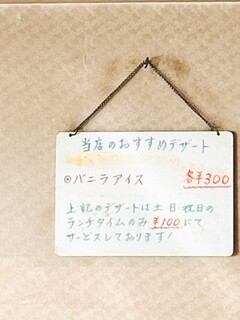 当店のおすすめデザート
◎バニラアイス 各¥300
上記のデザートは土日祝日の
ランチタイムのみ¥100にて
サービスしております!